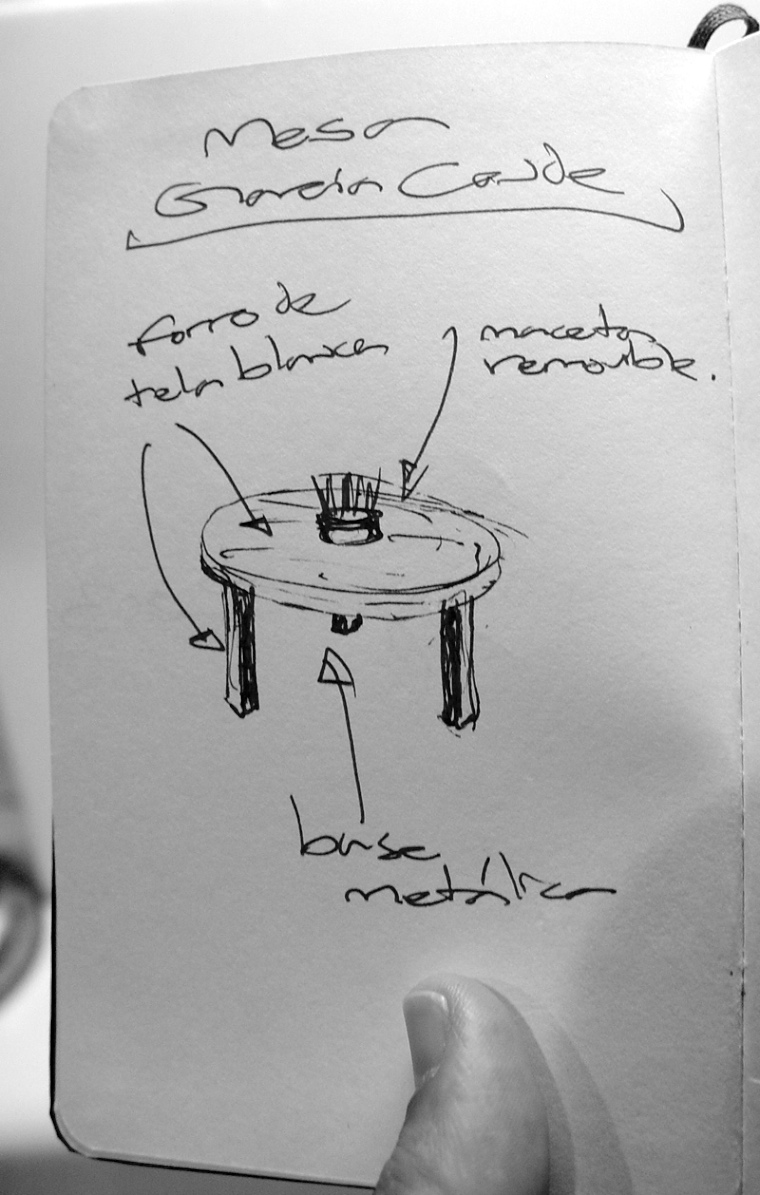 Mesa
García Conde
forro de
tela blanca
maceta
removible.
base
metálica